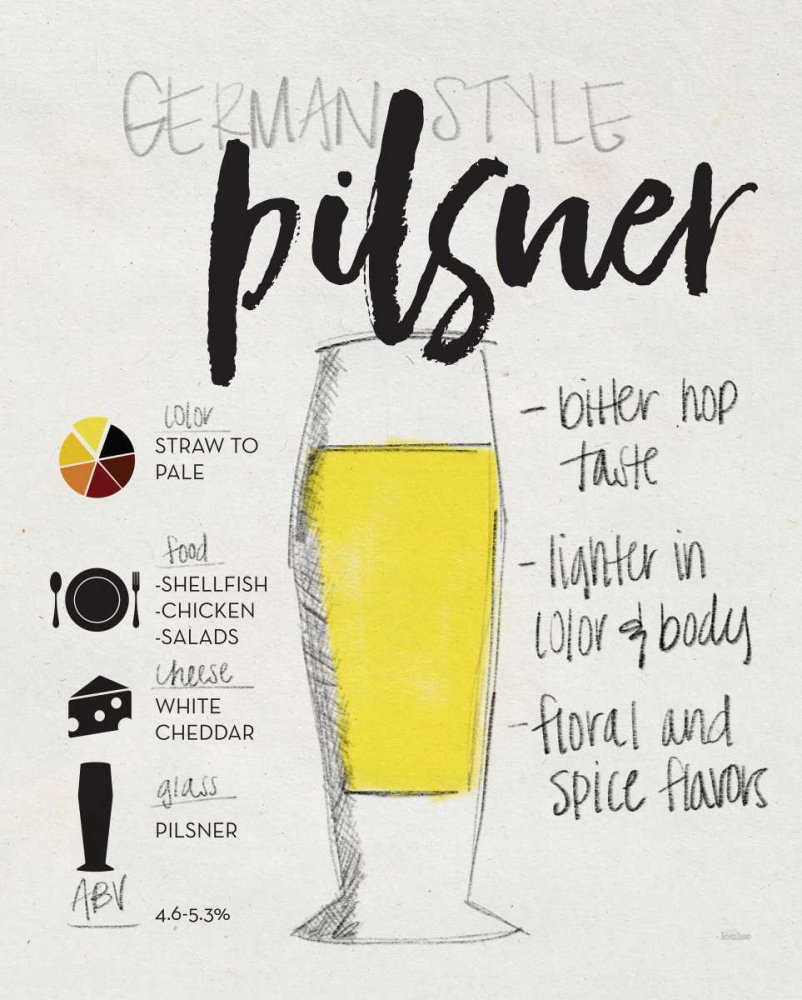 GERMAN STYLE
pilsner
color
STRAW TO
PALE
food
-SHELLFISH
-CHICKEN
-SALADS
cheese
WHITE
CHEDDAR
glass
PILSNER
ABV
4.6-5.3%
- bitter hop
taste
- lighter in
color & body
- floral and
spice flavors